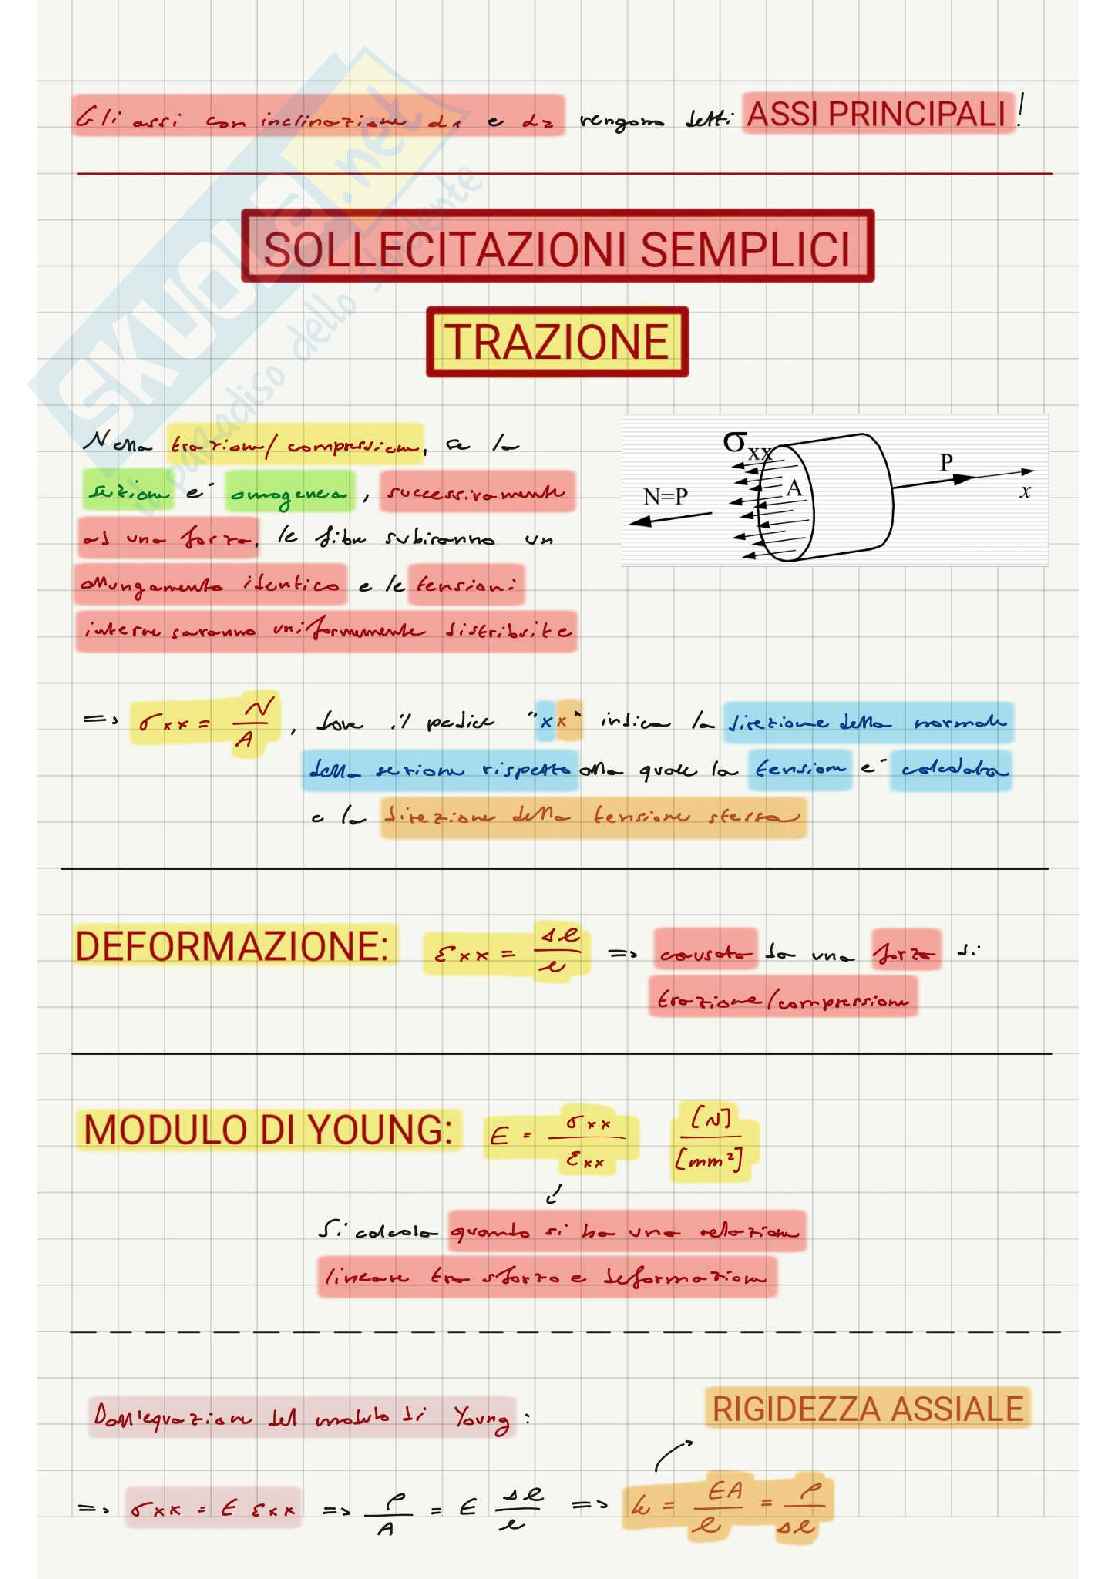 Gli assi con inclinazione α1 e α2 vengono detti ASSI PRINCIPALI!
SOLLECITAZIONI SEMPLICI
TRAZIONE
Nella trazione/compressione, se la
sezione e' omogenea, successivamente
ad una forza, le fibre subiranno un
allungamento identico e le tensioni
interne saranno uniformemente distribuite
σxx
N=P
A
P
x
=> σxx = N/A, dove il pedice "xx" indica la direzione della normale
della sezione rispetto alla quale la tensione e' calcolata
e la direzione della tensione stessa
DEFORMAZIONE: εxx = Δl/l => causata da una forza di
trazione/compressione
MODULO DI YOUNG: E = σxx/εxx [N]/[mm²]
Si calcola quando si ha una relazione
lineare tra sforzo e deformazione
Dall'equazione del modulo di Young:
RIGIDEZZA ASSIALE
=> σxx = E εxx => P/A = E Δl/l => k = EA/l = P/Δl
SKUOLA.net
il paradiso dello studente